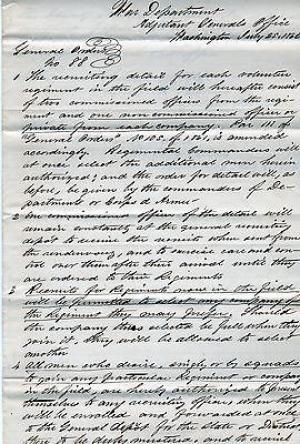 War Department
Adjutant Generals Office
Washington July 25. 186
General Orders
No 88
1 The recruiting detail for each volunteer
regiment in the field will hereafter consist
of two commissioned officers from the regi-
ment and one non commissioned officer or
private from each company. Par. III of
General Orders No 105. of 1861. is amended
accordingly. Regimental Commanders will
at once select the additional men herein
authorized; and the order for detail will, as
before, be given by the commanders of De-
partments or Corps d Armee
2 One commissioned officer of the detail will
remain constantly at the general recruiting
depot to receive the recruits when sent from
the rendezvous, and to exercise care and con-
trol over them after their arrival until they
are ordered to their Regiments
3 Recruits for Regiments now in the field
will be permitted to select any company of
the Regiment they may prefer. Should
the company thus selected be full when they
join it, they will be allowed to select
another
4 All men who desire, singly or by squads
to join any particular Regiment or company
in the field, are hereby authorized to present
themselves to any recruiting officer, when they
will be enrolled and forwarded at once
to the General depot for the State or District
there to be duly mustered, and to receive